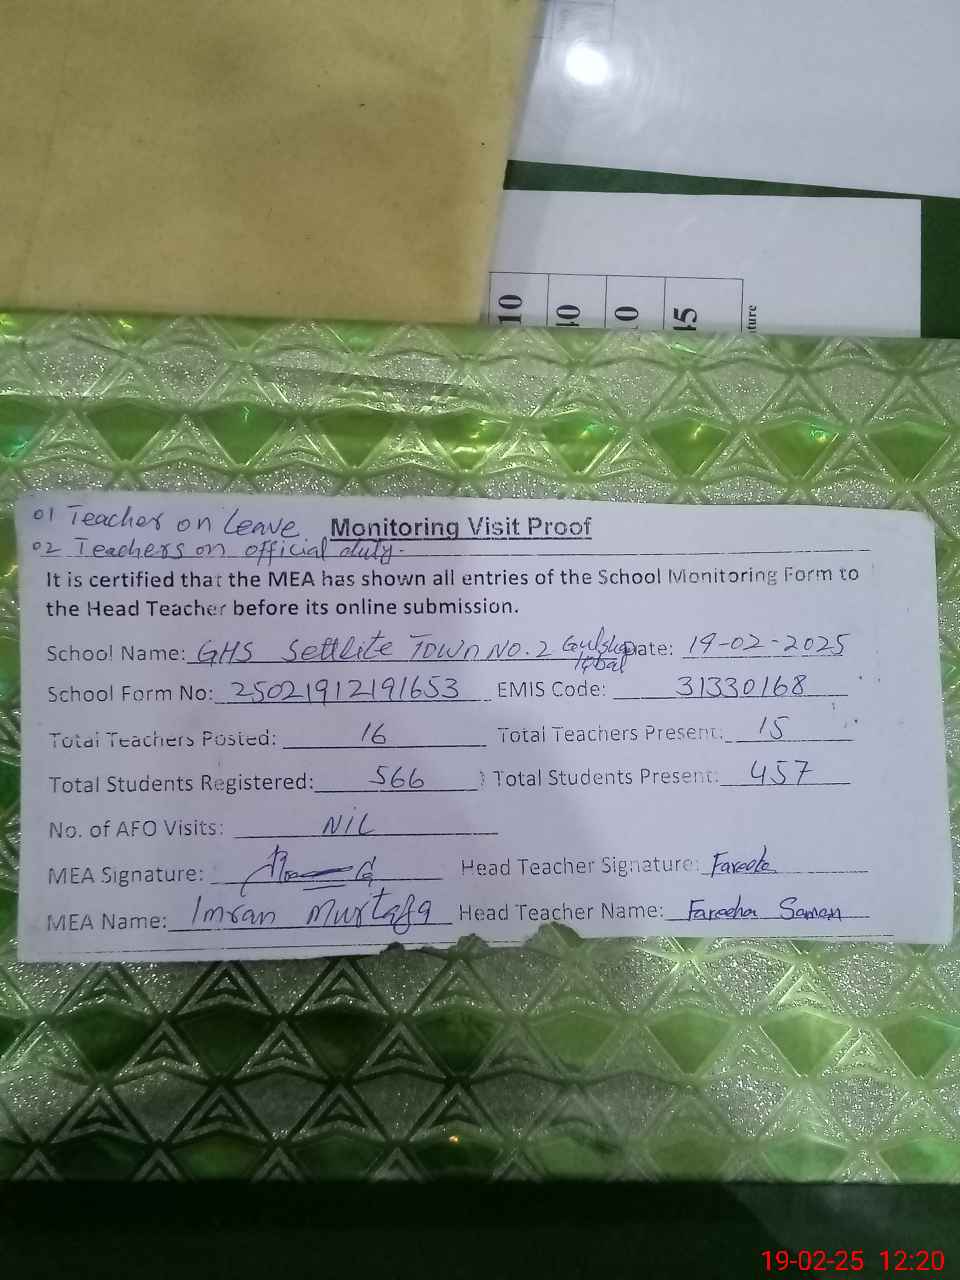 10
10
10
45
ture
01 Teacher on Leave.
Monitoring Visit Proof
02 Teachers on official duty.
It is certified that the MEA has shown all entries of the School Monitoring Form to
the Head Teacher before its online submission.
School Name: GHS Settlite Town No. 2 Gulshan Iqbal Date: 19-02-2025
School Form No: 25021912191653 EMIS Code: 31330168
Total Teachers Posted: 16 Total Teachers Present: 15
Total Students Registered: 566 Total Students Present: 457
No. of AFO Visits: NIL
MEA Signature: Head Teacher Signature: Fareeha
MEA Name: Imran Murtafa Head Teacher Name: Fareeha Saman
19-02-25 12:20